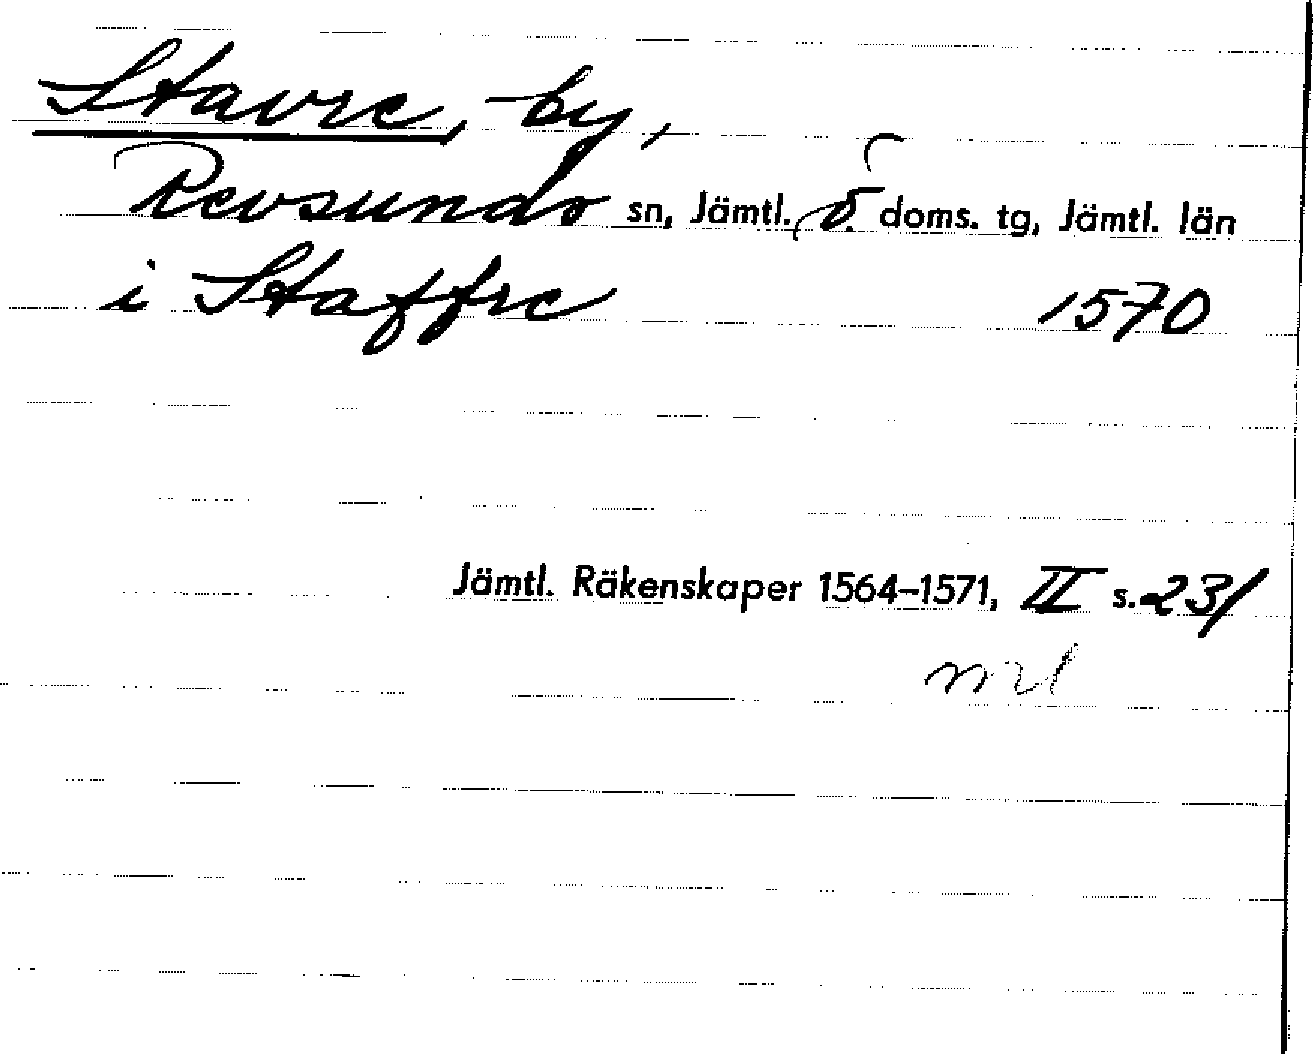 Stavre, by,
Revsunds sn, Jämtl. ö. doms. tg, Jämtl. län
i Staffre 1570
Jämtl. Räkenskaper 1564–1571, II s. 231